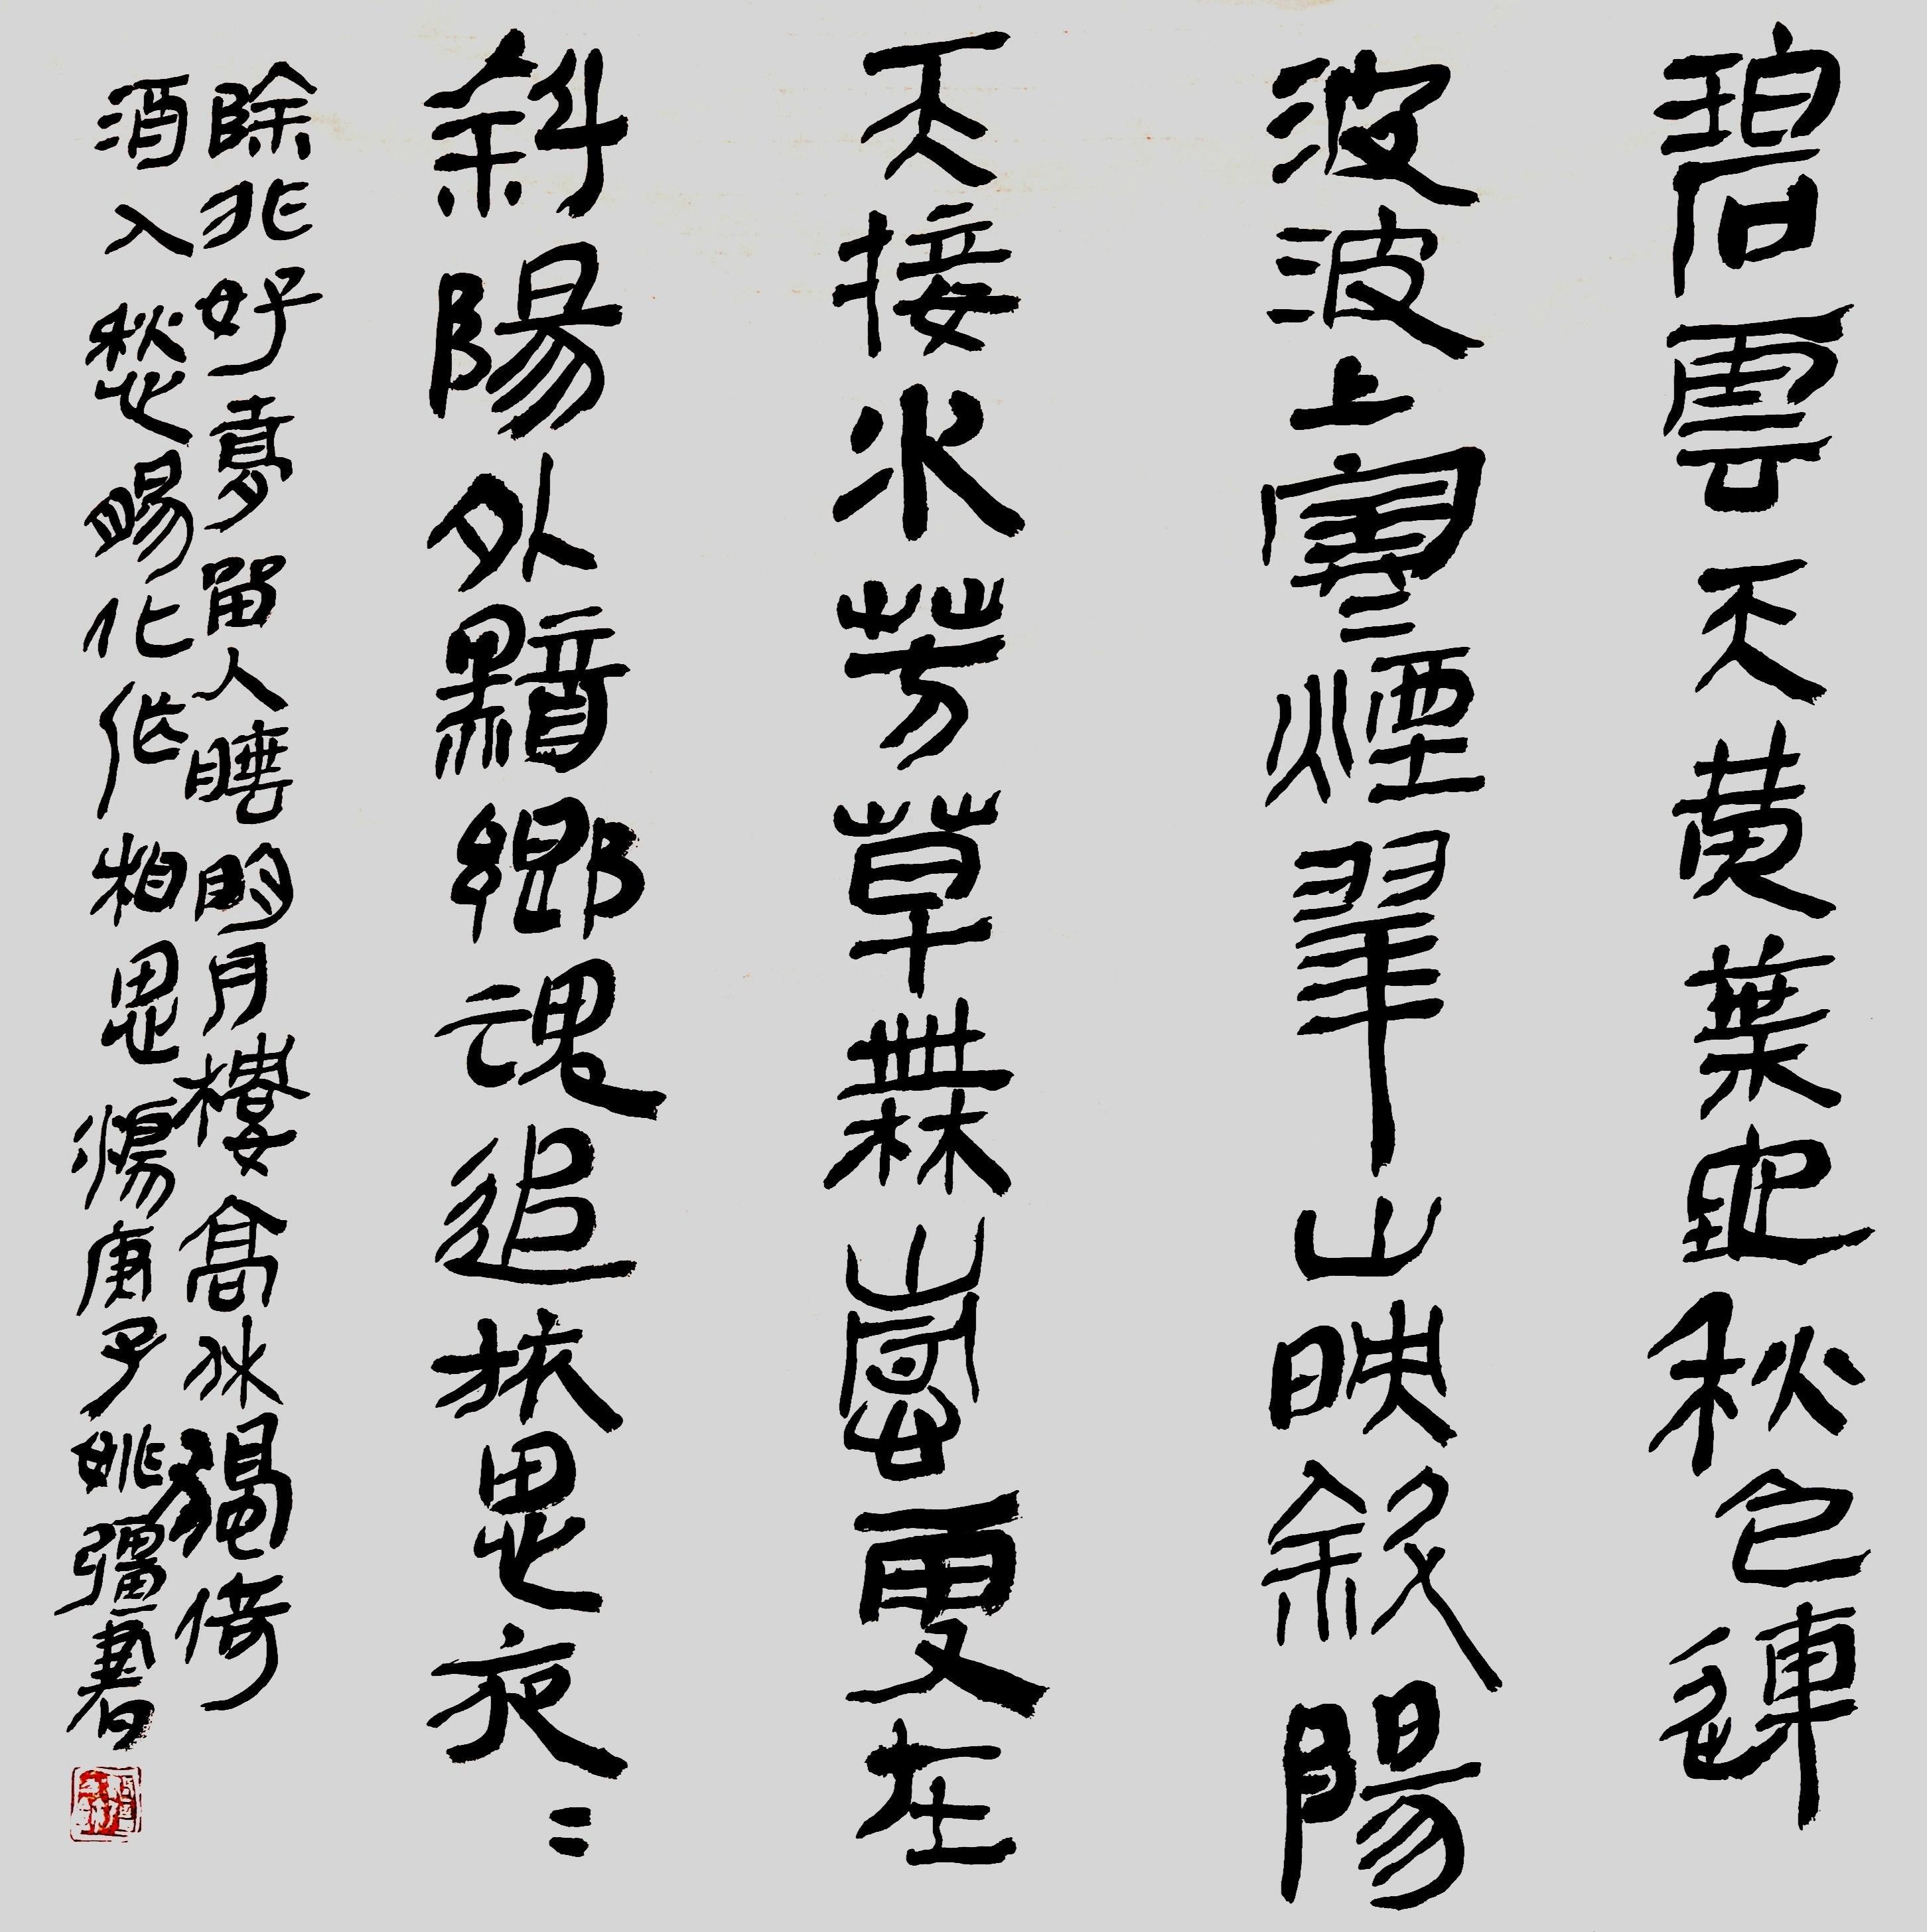 碧雲天黄葉地秋色連
波波上寒煙翠山映斜陽
天接水芳草無更在
斜陽外黯鄉魂追旅思夜〻
除非好夢留人睡明月樓高休獨倚
酒入愁腸化作相思庚子姚疆書